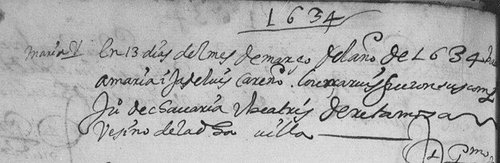 1634
maria
En 13 dias del mes de março del año de 1634
a maria ija de luis Careño fueron sus conp
Ju de chavaria y beatris de retamosa
vesino de la dha villa